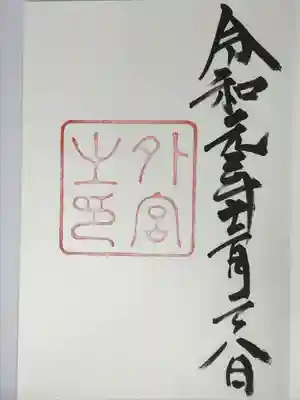 令和元年十二月二十八日
外宮
之印